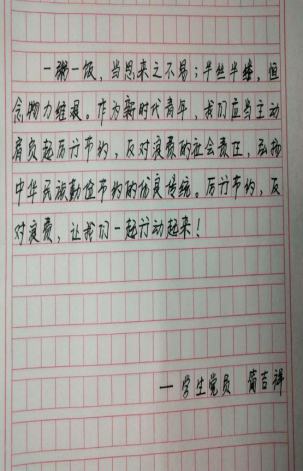 一粥一饭，当思来之不易；半丝半缕，恒
念物力维艰。作为新时代青年，我们应当主动
肩负起厉行节约，反对浪费的社会责任，弘扬
中华民族勤俭节约的优良传统。厉行节约，反
对浪费，让我们一起行动起来！
—学生党员 简吉祥